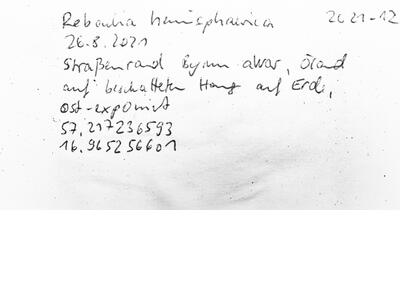 Reboulia hemisphaerica 2021-12
26.8.2021
Straßenrand Gynge alvar, Öland
auf beschatteten Hang auf Erde,
ost-exponiert
57,217236593
16,965256601